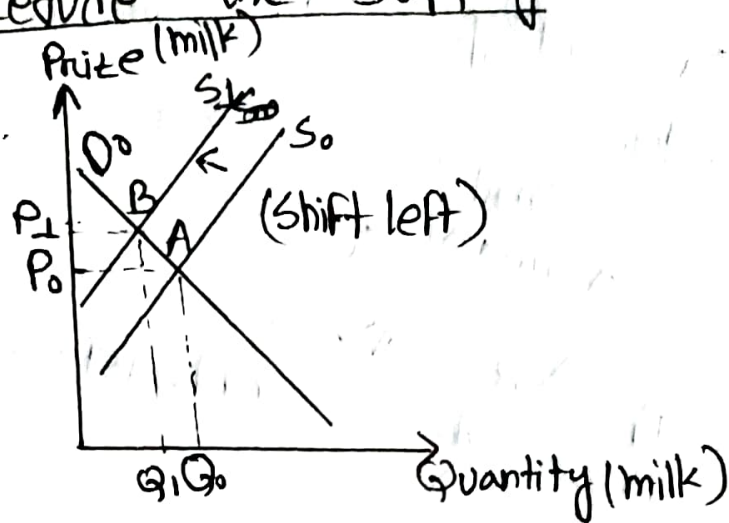 the
Prize (milk)
S1
S0
D0
B
A
(Shift left)
P1
P0
Q1 Q0
Quantity (milk)